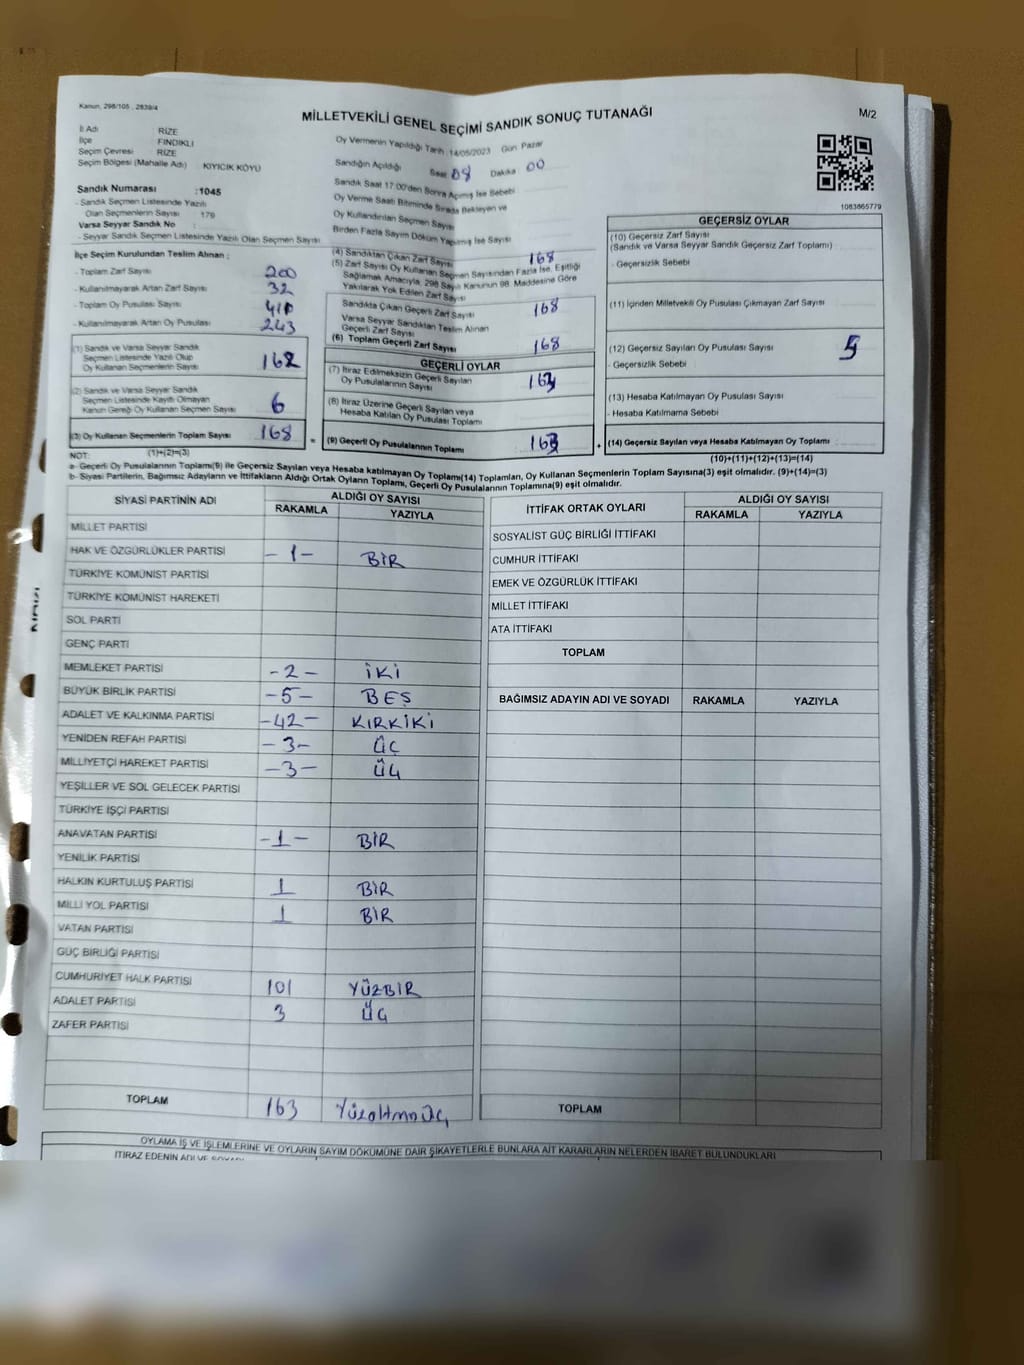 Kanun, 298/105 , 2839/4
MİLLETVEKİLİ GENEL SEÇİMİ SANDIK SONUÇ TUTANAĞI
M/2
İl Adı RİZE
İlçe FINDIKLI
Seçim Çevresi RİZE
Seçim Bölgesi (Mahalle Adı) KIYICIK KÖYÜ
Sandık Numarası :1045
- Sandık Seçmen Listesinde Yazılı
Olan Seçmenlerin Sayısı 179
Varsa Seyyar Sandık No
- Seyyar Sandık Seçmen Listesinde Yazılı Olan Seçmen Sayısı
İlçe Seçim Kurulundan Teslim Alınan ;
- Toplam Zarf Sayısı 200
- Kullanılmayarak Artan Zarf Sayısı 32
- Toplam Oy Pusulası Sayısı
- Kullanılmayarak Artan Oy Pusulası 243
(1) Sandık ve Varsa Seyyar Sandık
Seçmen Listesinde Yazılı Olup
Oy Kullanan Seçmenlerin Sayısı 162
(2) Sandık ve Varsa Seyyar Sandık
Seçmen Listesinde Kayıtlı Olmayan
Kanun Gereği Oy Kullanan Seçmen Sayısı 6
(3) Oy Kullanan Seçmenlerin Toplam Sayısı 168
Oy Vermenin Yapıldığı Tarih 14/05/2023 Gün Pazar
Sandığın Açıldığı Saat 08 Dakika 00
Sandık Saat 17.00'den Sonra Açılmış İse Sebebi
Oy Verme Saati Bitiminde Sırada Bekleyen ve
Oy Kullandırılan Seçmen Sayısı
Birden Fazla Sayım Döküm Yapılmış İse Sayısı
(4) Sandıktan Çıkan Zarf Sayısı 168
(5) Zarf Sayısı Oy Kullanan Seçmen Sayısından Fazla İse, Eşitliği
Sağlamak Amacıyla, 298 Sayılı Kanunun 98. Maddesine Göre
Yakılarak Yok Edilen Zarf Sayısı
Sandıkta Çıkan Geçerli Zarf Sayısı 168
Varsa Seyyar Sandıktan Teslim Alınan
Geçerli Zarf Sayısı
(6) Toplam Geçerli Zarf Sayısı 168
GEÇERLİ OYLAR
(7) İtiraz Edilmeksizin Geçerli Sayılan
Oy Pusulalarının Sayısı 163
(8) İtiraz Üzerine Geçerli Sayılan veya
Hesaba Katılan Oy Pusulası Toplamı
= (9) Geçerli Oy Pusulalarının Toplamı 163 +
1083865779
GEÇERSİZ OYLAR
(10) Geçersiz Zarf Sayısı
(Sandık ve Varsa Seyyar Sandık Geçersiz Zarf Toplamı)
- Geçersizlik Sebebi
(11) İçinden Milletvekili Oy Pusulası Çıkmayan Zarf Sayısı
(12) Geçersiz Sayılan Oy Pusulası Sayısı 5
- Geçersizlik Sebebi
(13) Hesaba Katılmayan Oy Pusulası Sayısı
- Hesaba Katılmama Sebebi
(14) Geçersiz Sayılan veya Hesaba Katılmayan Oy Toplamı
NOT: (1)+(2)=(3) (10)+(11)+(12)+(13)=(14)
a- Geçerli Oy Pusulalarının Toplamı(9) ile Geçersiz Sayılan veya Hesaba katılmayan Oy Toplamı(14) Toplamları, Oy Kullanan Seçmenlerin Toplam Sayısına(3) eşit olmalıdır. (9)+(14)=(3)
b- Siyasi Partilerin, Bağımsız Adayların ve İttifakların Aldığı Ortak Oyların Toplamı, Geçerli Oy Pusulalarının Toplamına(9) eşit olmalıdır.
SİYASİ PARTİNİN ADI ALDIĞI OY SAYISI
RAKAMLA YAZIYLA
MİLLET PARTİSİ
HAK VE ÖZGÜRLÜKLER PARTİSİ -1- BİR
TÜRKİYE KOMÜNİST PARTİSİ
TÜRKİYE KOMÜNİST HAREKETİ
SOL PARTİ
GENÇ PARTİ
MEMLEKET PARTİSİ -2- İKİ
BÜYÜK BİRLİK PARTİSİ -5- BEŞ
ADALET VE KALKINMA PARTİSİ -42- KIRKİKİ
YENİDEN REFAH PARTİSİ -3- ÜÇ
MİLLİYETÇİ HAREKET PARTİSİ -3- ÜÇ
YEŞİLLER VE SOL GELECEK PARTİSİ
TÜRKİYE İŞÇİ PARTİSİ
ANAVATAN PARTİSİ -1- BİR
YENİLİK PARTİSİ
HALKIN KURTULUŞ PARTİSİ 1 BİR
MİLLİ YOL PARTİSİ 1 BİR
VATAN PARTİSİ
GÜÇ BİRLİĞİ PARTİSİ
CUMHURİYET HALK PARTİSİ 101 YÜZBİR
ADALET PARTİSİ 3 ÜÇ
ZAFER PARTİSİ
TOPLAM 163 Yüzaltmışüç
İTTİFAK ORTAK OYLARI ALDIĞI OY SAYISI
RAKAMLA YAZIYLA
SOSYALİST GÜÇ BİRLİĞİ İTTİFAKI
CUMHUR İTTİFAKI
EMEK VE ÖZGÜRLÜK İTTİFAKI
MİLLET İTTİFAKI
ATA İTTİFAKI
TOPLAM
BAĞIMSIZ ADAYIN ADI VE SOYADI RAKAMLA YAZIYLA
TOPLAM
OYLAMA İŞ VE İŞLEMLERİNE VE OYLARIN SAYIM DÖKÜMÜNE DAİR ŞİKAYETLERLE BUNLARA AİT KARARLARIN NELERDEN İBARET BULUNDUKLARI
İTİRAZ EDENİN ADI VE